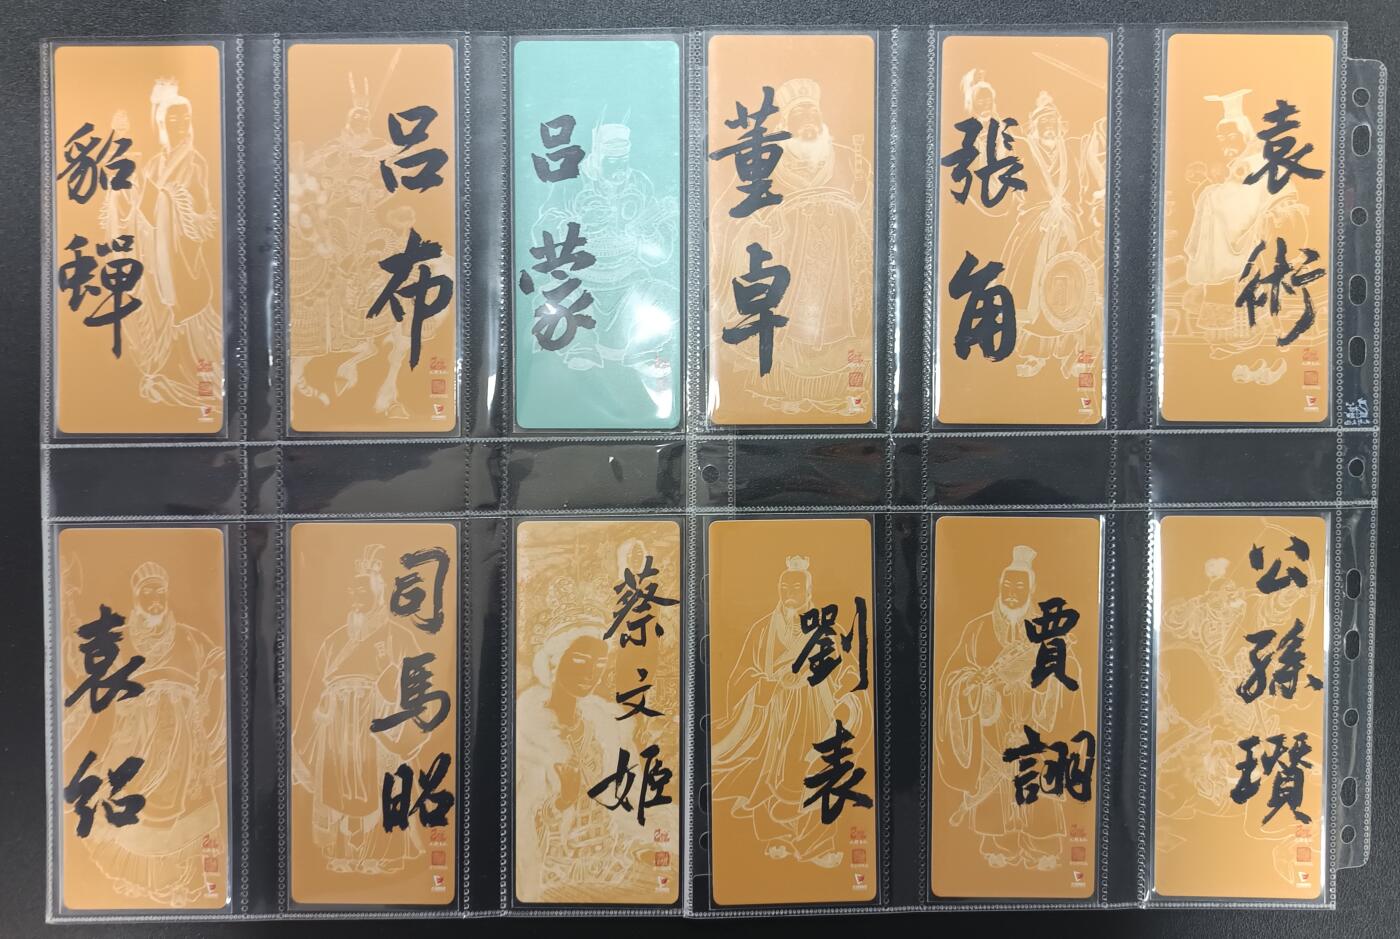 貂蟬
呂布
呂蒙
董卓
張角
袁術
袁紹
司馬昭
蔡文姬
劉表
賈詡
公孫瓚